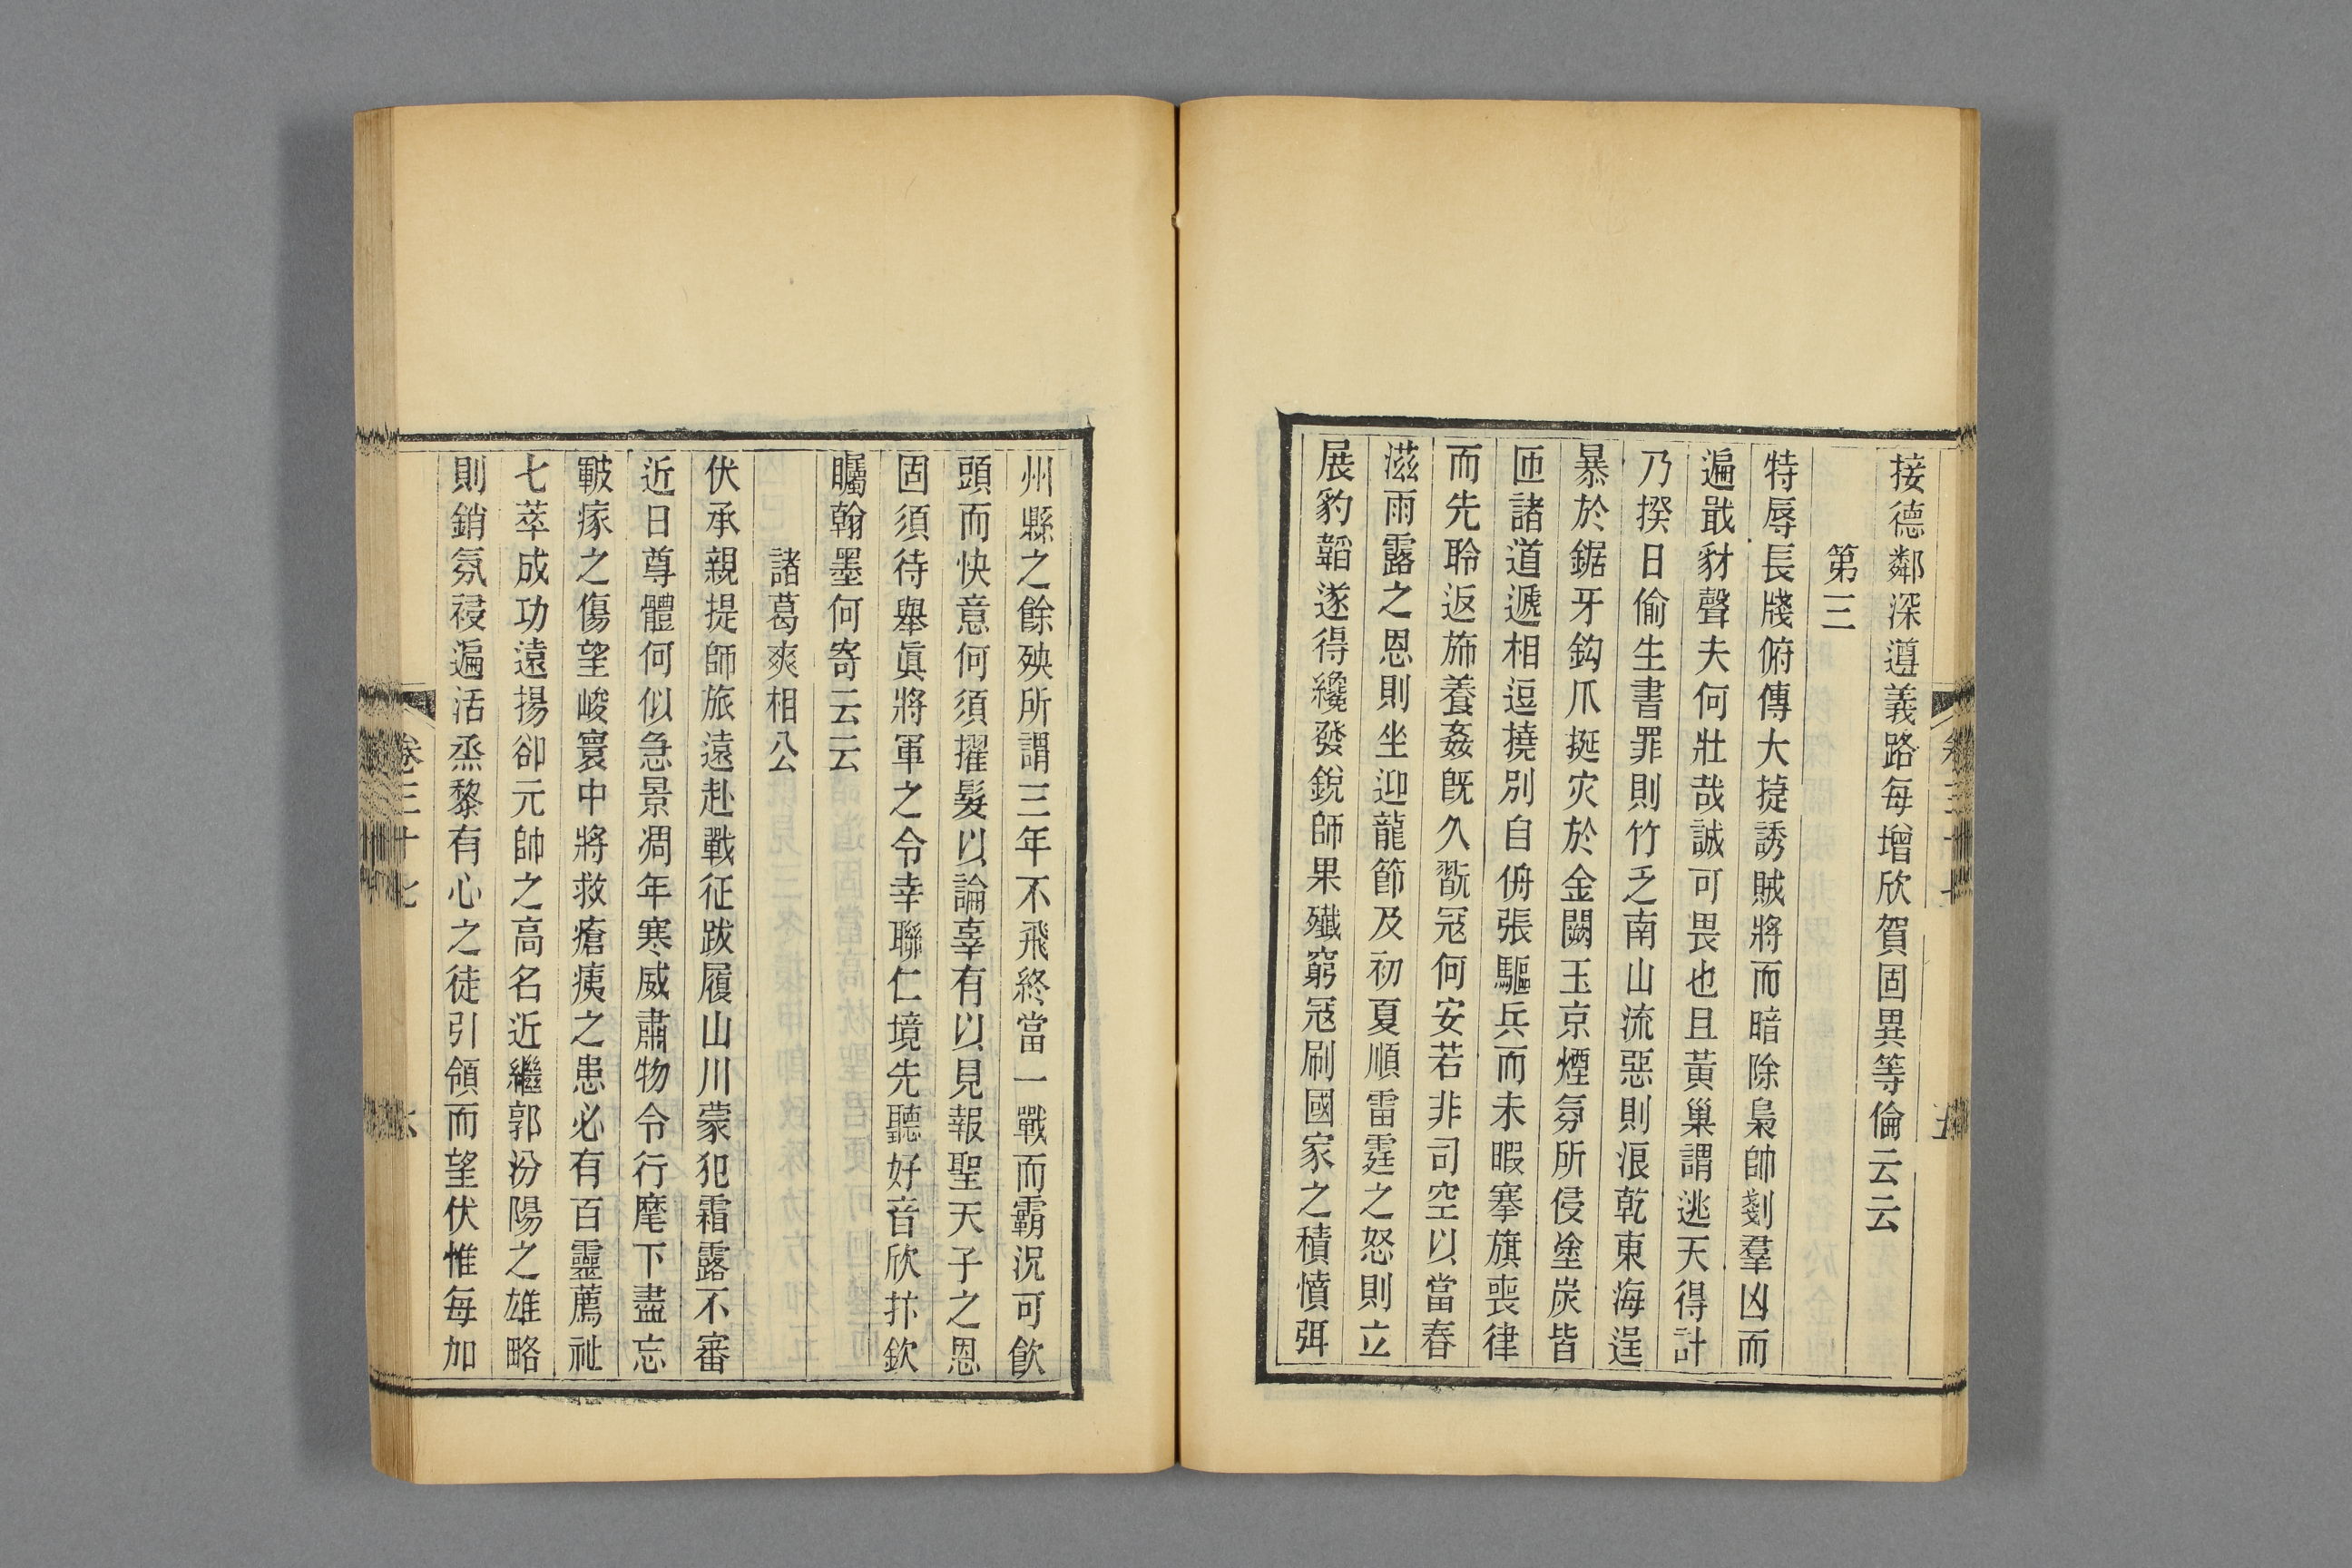 接德鄰深遵義路每增欣賀固異等倫云云
第三
特辱長牋俯傳大捷誘賊將而暗除梟帥剗羣凶而
遍戢豺聲夫何壯哉誠可畏也且黃巢謂逃天得計
乃揆日偷生書罪則竹乏南山流惡則浪乾東海逞
暴於鋸牙鈎爪挻灾於金闕玉京煙氛所侵塗炭皆
匝諸道遞相逗撓別自侜張驅兵而未暇搴旗喪律
而先聆返斾養姦旣久翫冦何安若非司空以當春
滋雨露之恩則坐迎龍節及初夏順雷霆之怒則立
展豹韜遂得纔發銳師果殲窮冦刷國家之積憤弭
州縣之餘殃所謂三年不飛終當一戰而霸況可飮
頭而快意何須擢髮以論辜有以見報聖天子之恩
固須待舉眞將軍之令幸聯仁境先聽好音欣抃欽
矚翰墨何寄云云
諸葛爽相公
伏承親提師旅遠赴戰征跋履山川蒙犯霜露不審
近日尊體何似急景凋年寒威肅物令行麾下盡忘
皸瘃之傷望峻寰中將救瘡痍之患必有百靈薦祉
七萃成功遠揚卻元帥之高名近繼郭汾陽之雄略
則銷氛祲遍活烝黎有心之徒引領而望伏惟每加
卷三十七
六